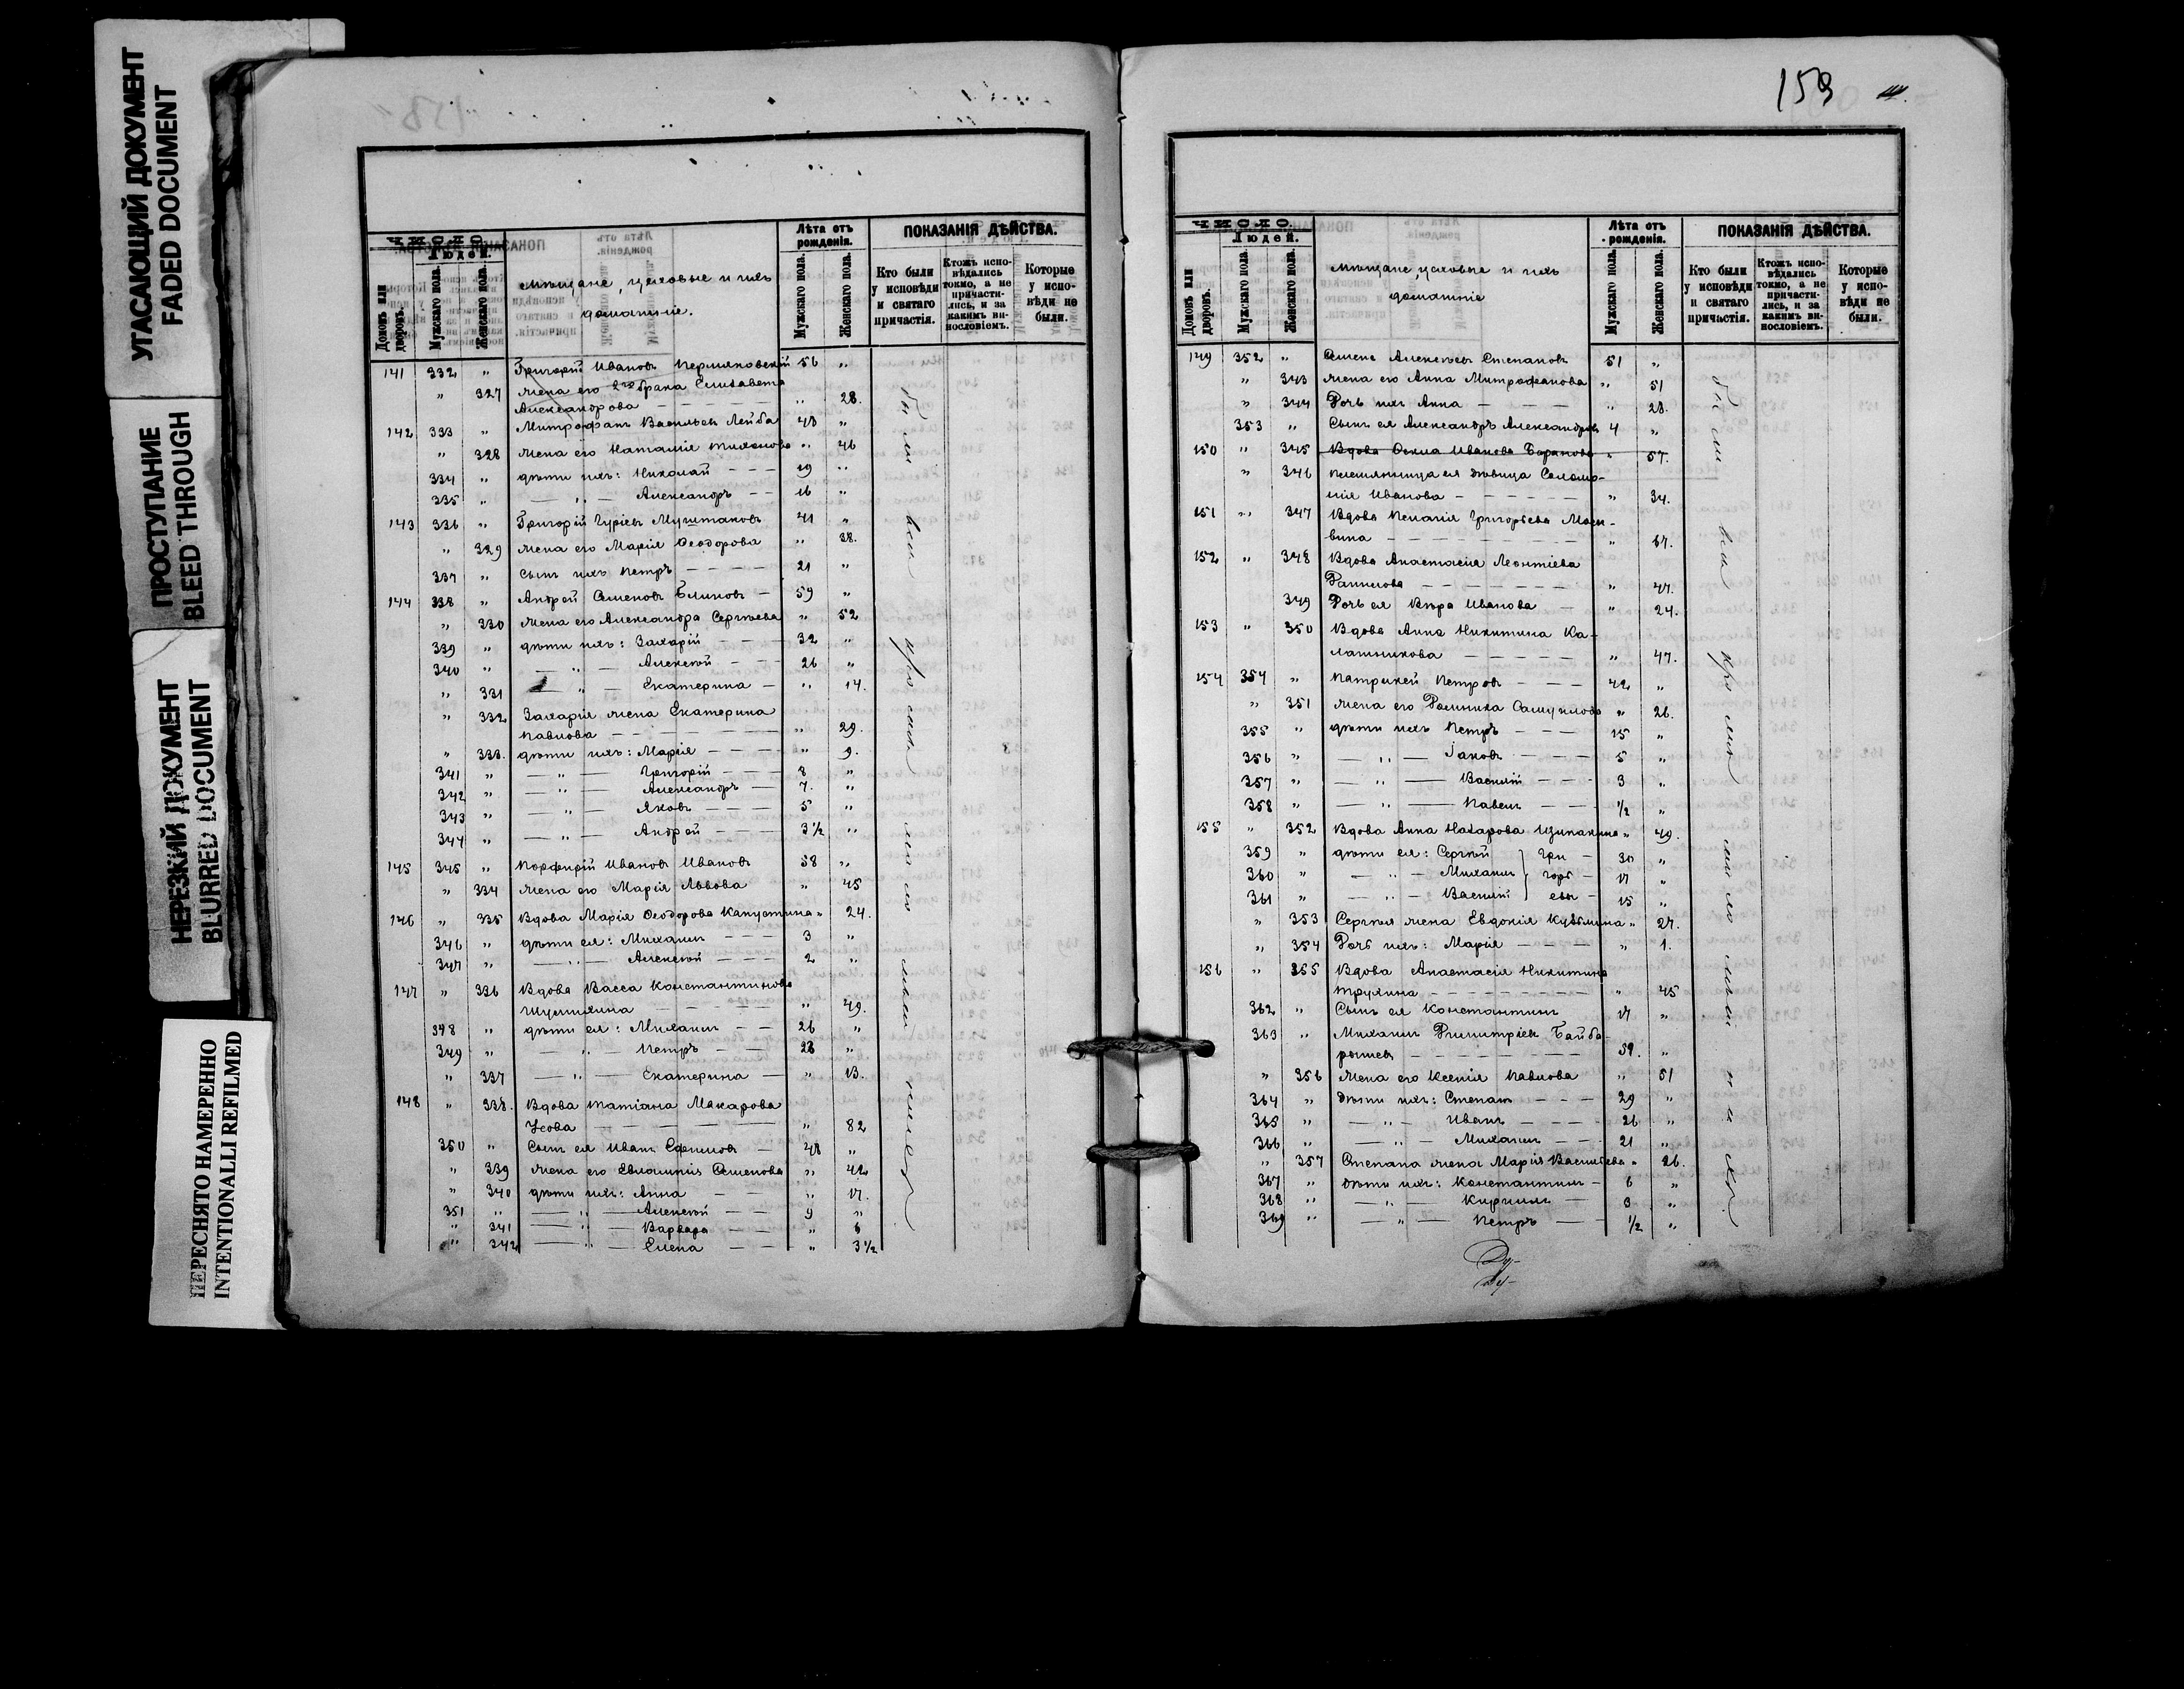 УГАСАЮЩИЙ ДОКУМЕНТ
FADED DOCUMENT
ПРОСТУПАНИЕ
BLEED THROUGH
НЕРЕЗКИЙ ДОКУМЕНТ
BLURRED DOCUMENT
ПЕРЕСНЯТО НАМЕРЕННО
INTENTIONALLI REFILMED
ЧИСЛО
Людей.
Домовъ или дворовъ.
Мужскаго пола.
Женскаго пола.
Мѣщане, цеховые и ихъ
домашніе.
Лѣта отъ
рожденія.
Мужскаго пола.
Женскаго пола.
ПОКАЗАНІЯ ДѢЙСТВА.
Кто были
у исповѣди
и святаго
причастія.
Ктожъ испо-
вѣдались
токмо, а не
причасти-
лись, и за
какимъ ви-
нословіемъ.
Которые
у испо-
вѣди не
были.
141 332 " Григорій Ивановъ 56 "
" 327 жена его 2го брака Елисавета
Александрова " 28.
142 333 " Митрофанъ Васильевъ Лейба 48 "
" 328 жена его Наталія Тихонова " 46
334 " дѣти ихъ: Николай 19 "
335 " — " — Александръ 16 "
143 336 " Григорій Гурьевъ Муштаковъ 41 "
" 329 жена его Марія Ѳеодорова " 38.
337 " Сынъ ихъ Петръ 21 "
144 338 " Андрей Семеновъ Блиновъ 59 "
" 330 жена его Александра Сергѣева " 52
339 " дѣти ихъ: Захарій 32 "
340 " — " — Алексѣй 26 "
" 331 — " — Екатерина " 14.
" 332 Захарія жена Екатерина
Павлова " 29.
" 333. дѣти ихъ: Марія " 9.
341 " — " — Григорій 8 "
342 " — " — Александръ 7. "
343 " — " — Яковъ 5 "
344 " — " — Андрей 3 1/2 "
145 345 " Порфирій Ивановъ Ивановъ 58 "
" 334 жена его Марія Львова " 45
146 " 335 Вдова Марія Ѳеодорова Капустина " 24.
346 " дѣти ея: Михаилъ 3 "
347 " — " — Алексѣй 2 "
147 " 336 Вдова Васса Константинова
" 49.
348 " дѣти ея: Михаилъ 26 "
349 " — " — Петръ 23 "
" 337 — " — Екатерина " 13.
148 " 338. Вдова Татіана Макарова
Усова " 82
350 " Сынъ ея Иванъ Ефимовъ 48 "
" 339 жена его Евлампія Семенова " 42
" 340 дѣти ихъ: Анна " 17.
351 " — " — Алексѣй 9 "
" 341 — " — Варвара " 6
" 342 — " — Елена " 3 1/2
159
ЧИСЛО.
Людей.
Домовъ или дворовъ.
Мужскаго пола.
Женскаго пола.
Мѣщане, цеховые и ихъ
домашніе
Лѣта отъ
рожденія.
Мужскаго пола.
Женскаго пола.
ПОКАЗАНІЯ ДѢЙСТВА.
Кто были
у исповѣди
и святаго
причастія.
Ктожъ испо-
вѣдались
токмо, а не
причасти-
лись, и за
какимъ ви-
нословіемъ.
Которые
у испо-
вѣди не
были.
149 352 " Алексѣевъ Степановъ 51 "
" 343 жена его Анна Митрофанова " 51
" 344 Дочь ихъ Анна " 28.
353 " Сынъ ея Александръ Александровъ 4 "
150 " 345 Вдова Ивановa Баранова " 57.
" 346 племянница ея дѣвица Соломо-
нія Иванова " 34.
151 " 347 Вдова Пелагія Григорьева
вина " 67.
152 " 348 Вдова Анастасія Леонтіева
Данилова " 47.
349 Дочь ея Вѣра Иванова " 24.
153 " 350 Вдова Анна Никитина Ка-
лашникова " 47.
154 354 " Патрикей Петровъ 42 "
" 351 жена его Домника Самуилова " 26.
355 " дѣти ихъ Петръ 15 "
356 " — " — Іаковъ 5 "
357 " — " — Василій 3 "
358 " — " — Павелъ 1/2 "
155 " 352 Вдова Анна Назарова " 49.
359 " дѣти ея: Сергѣй } Гри 30 "
360 " — " — Михаилъ } горь 17 "
361 " — " — Василій } евы 15 "
" 353 Сергѣя жена Евдокія Кузьмина " 27.
" 354 Дочь ихъ: Марія " 1.
156 " 355 Вдова Анастасія Никитина
Трухина " 45
362 " Сынъ ея Константинъ 17 "
363 " Михаилъ Димитріевъ Байба-
рышевъ 59. "
" 356 Жена его Ксенія Павлова " 51
364 " Дѣти ихъ: Степанъ 29 "
365 " — " — Иванъ 26 "
366 " — " — Михаилъ 21 "
" 357 Степана жена Марія Васильева " 26.
367 " Дѣти ихъ: Константинъ 6 "
368 " — " — Кириллъ 3 "
369 " — " — Петръ 1/2 "
Ду-